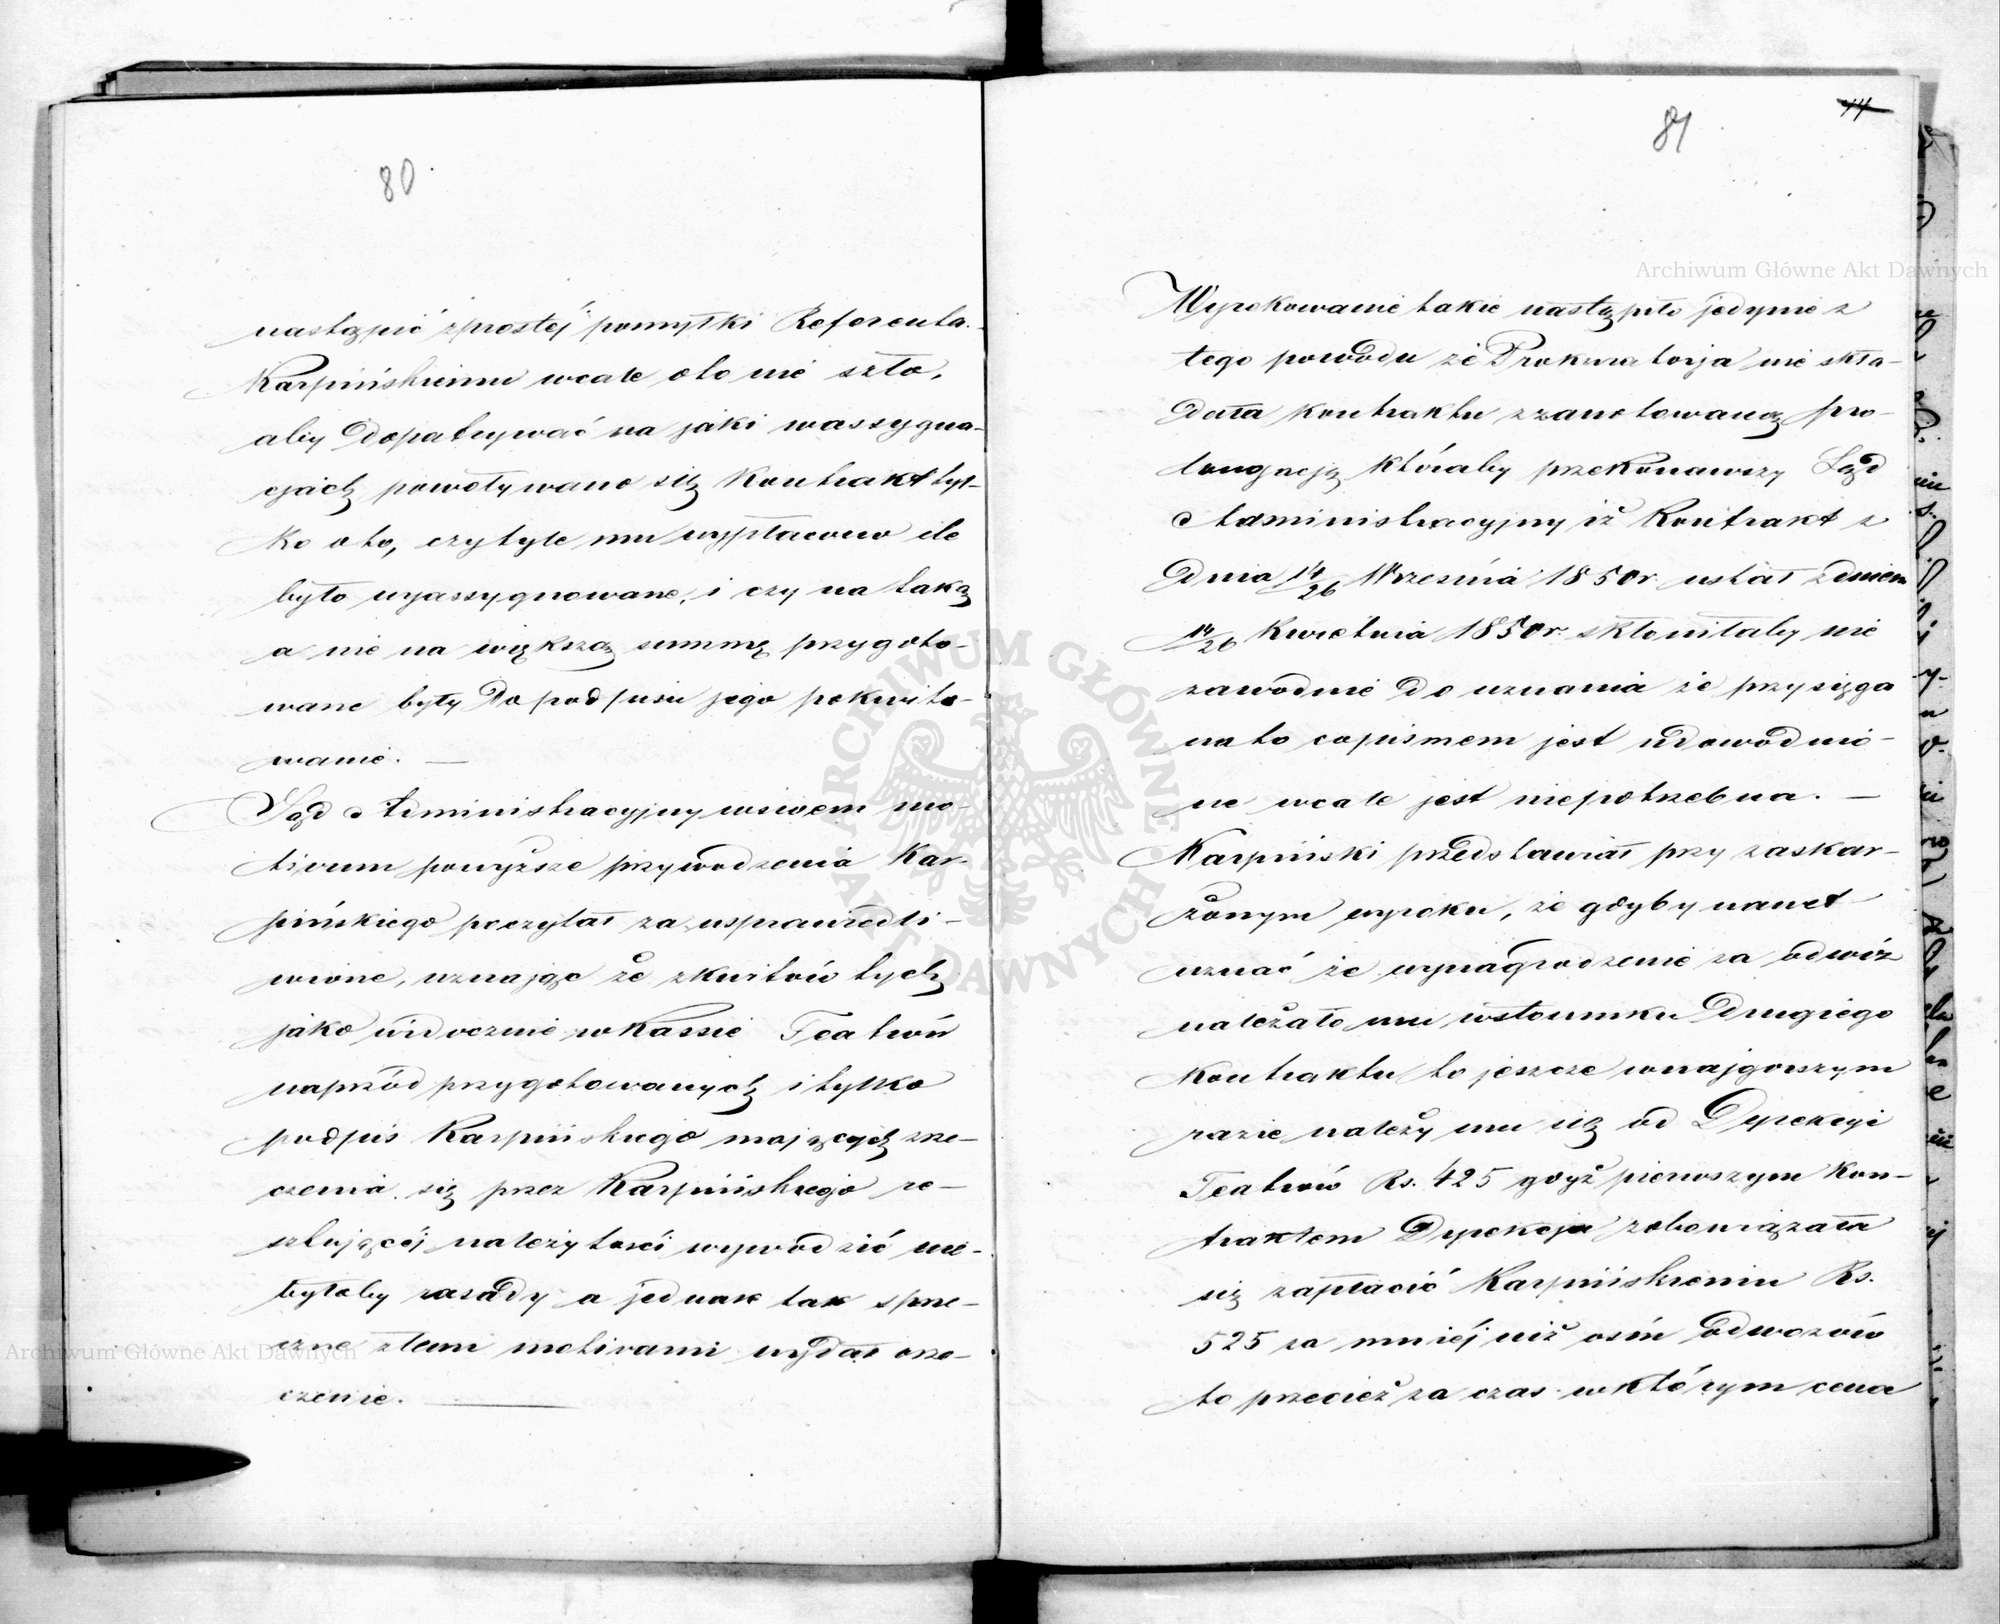 80
nastąpić zprostéj pomyłki Referenta.
Karpińskiemu wcale oto nie szło,
aby dopatrywać na jaki wassygna-
cjach powoływano się Kontrakt tyl-
ko oto, czy tyle mu wypłacono ile
było wyassygnowane, i czy na taką
a nie na większą summę przygoto-
wane były do podpisu jego pokwito-
wanie. —
Sąd Administracyjny wswem mo-
tivum powyższe przywodzenia Kar-
pińskiego poczytał za usprawiedli-
wione, uznając że zkwitów tych
jako widocznie w Kassie Teatrów
naprzód przygotowanych i tylko
podpis Karpińskiego mających zrze-
czenia się przez Karpińskiego re-
sztującéj należytości wywodzić nie-
byłoby zasady a jednak tak sprze-
czne z temi motivami wydał orze-
czenie. —
81
44
Wyrokowanie takie nastąpiło jedynie z
tego powodu że Prokuratorja nie skła-
dała kontraktu z zanotowaną pro-
longacją któraby przekonawszy Sąd
Administracyjny iż Kontrakt z
dnia 14/26 Września 1850r. ustał z dniem
14/26 Kwietnia 1850r. skłoniłaby nie
zawodnie do uznania że przysięga
na to co pismem jest udowodnio-
ne wcale jest niepotrzebna. —
Karpiński przedstawiał przy zaskar-
żonym wyroku, że gdyby nawet
uznać że wynagrodzenie za odwóz
należało mu wstosunku drugiego
Kontraktu to jeszcze wnajgorszym
razie należy mu się od Dyrekcyi
Teatrów Rs. 425 gdyż pierwszym Kon-
traktem Dyrekcja zobowiązała
się zapłacić Karpińskiemu Rs.
525 za mniéj niż osím odwozów
to przecież za czas w którym cena